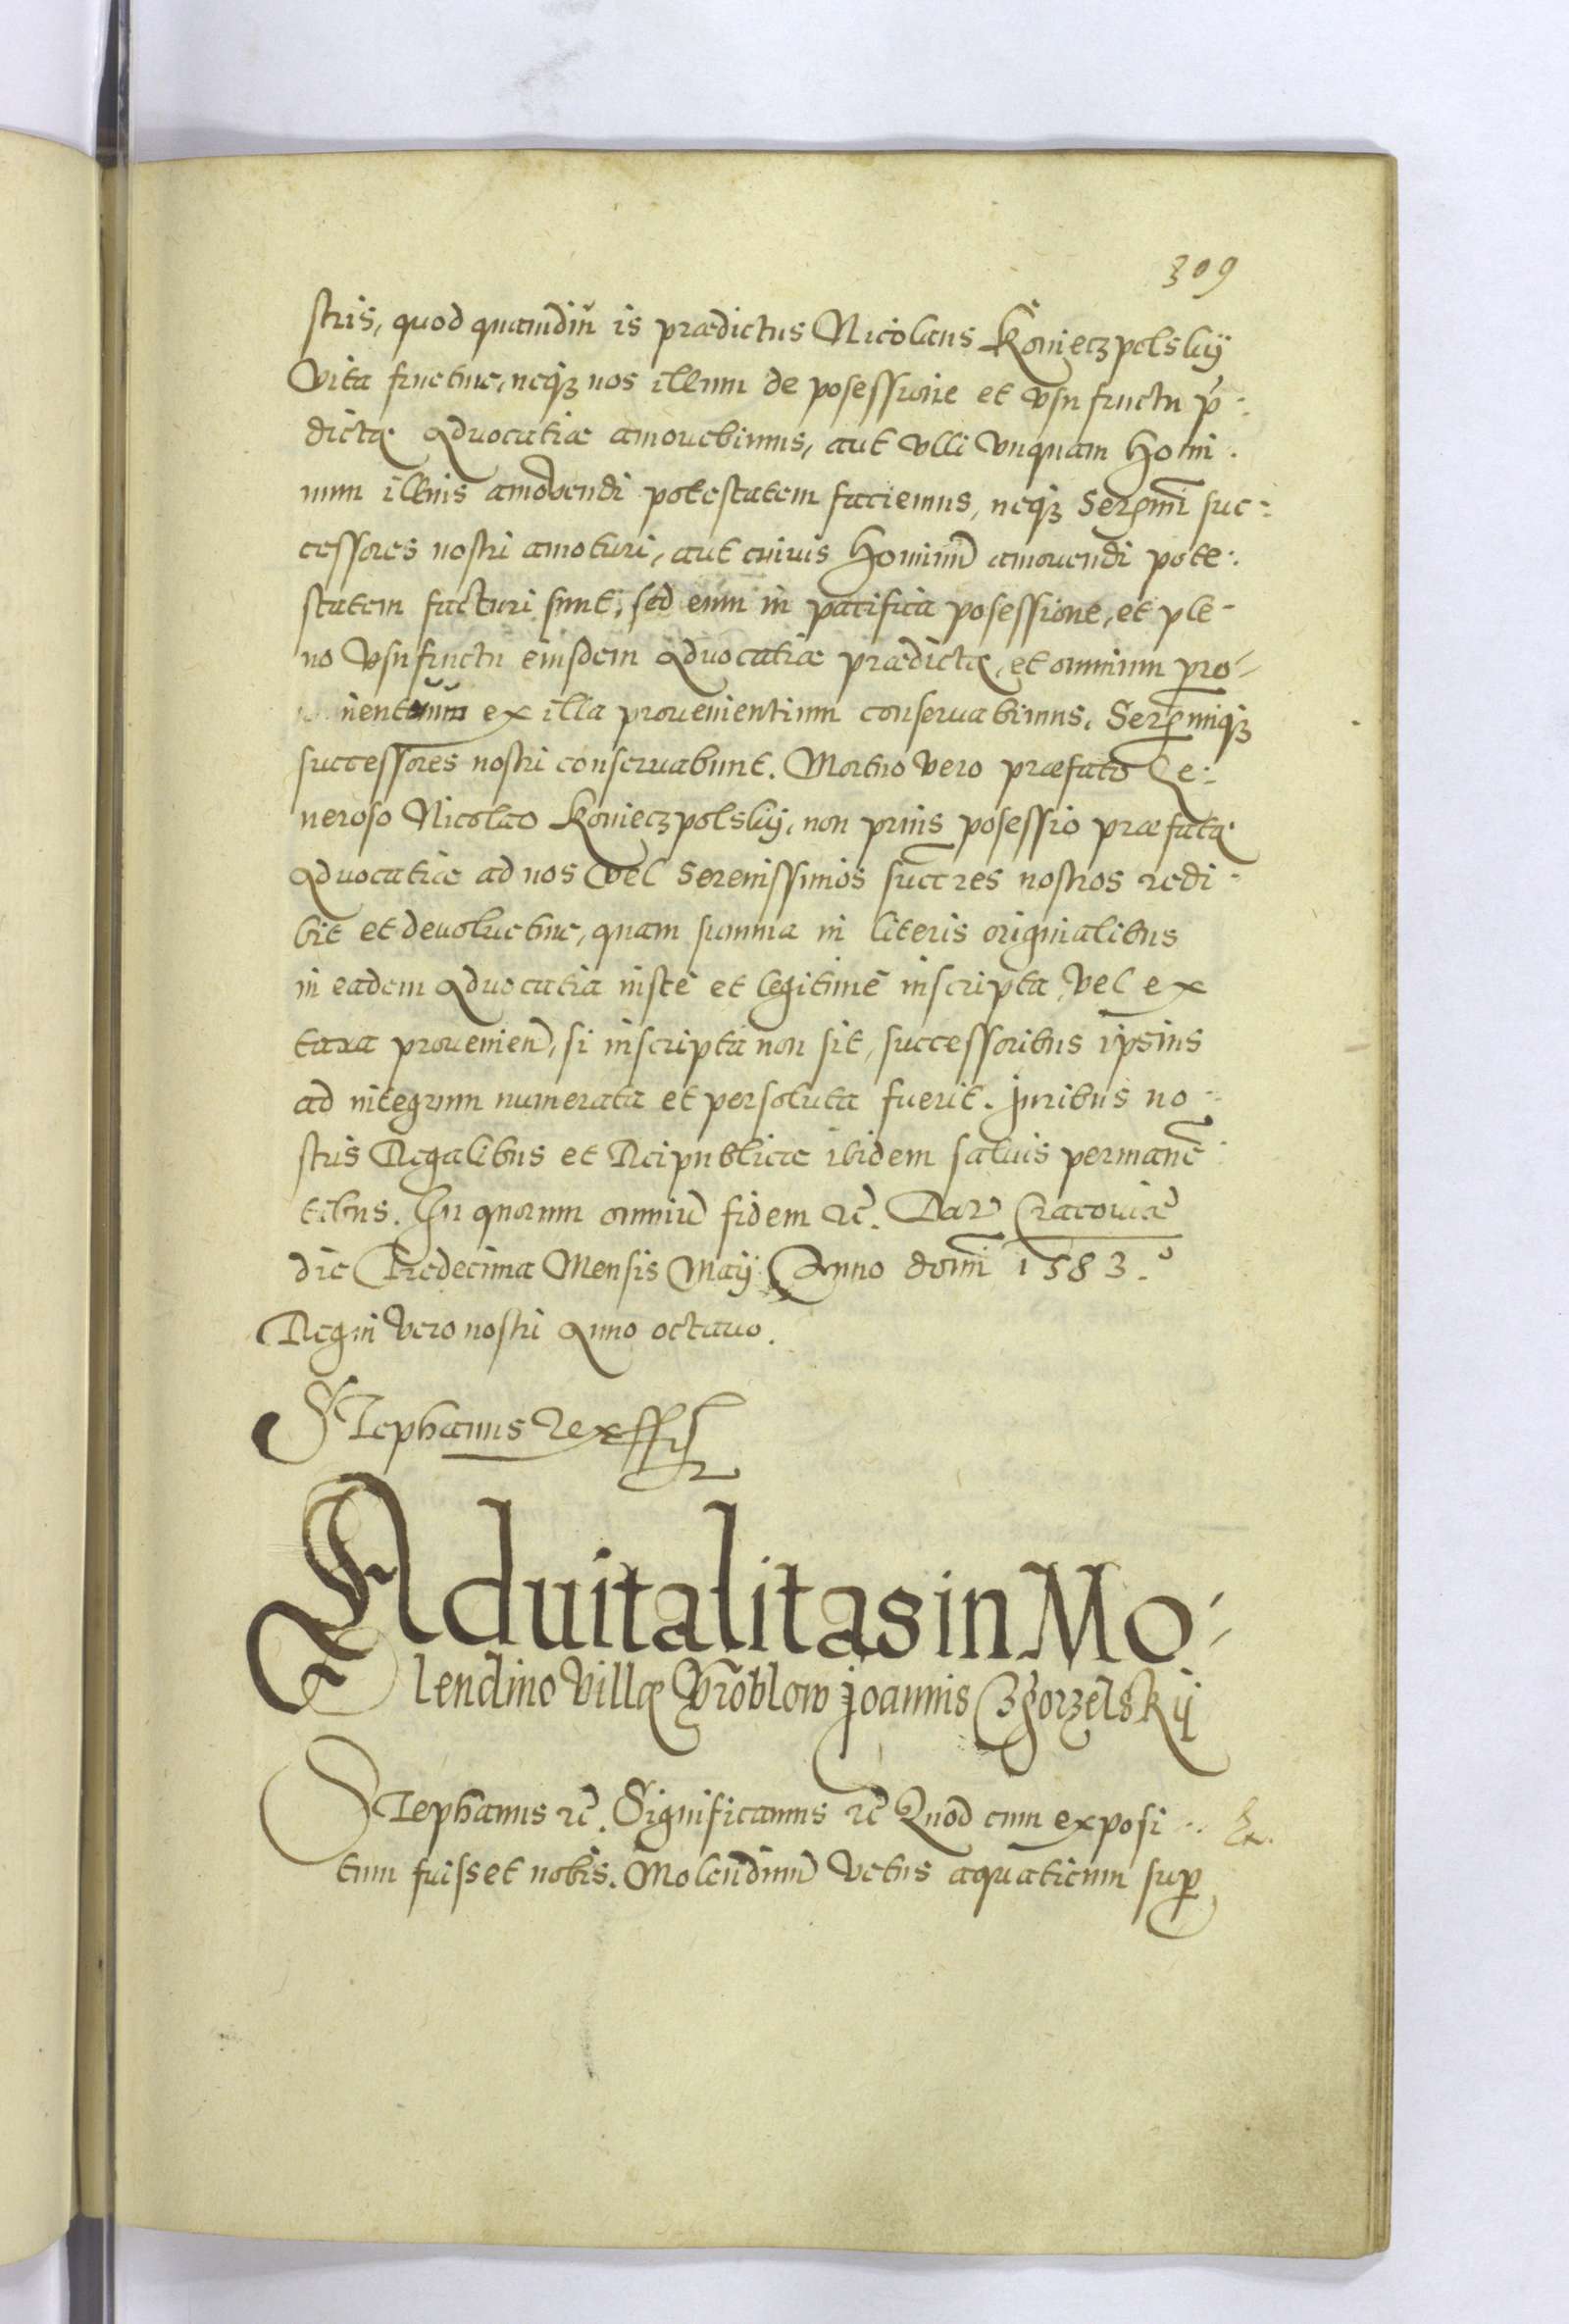 309
stris, quod quamdiu is prædictus Nicolaus Koniecpolskÿ
Vita fruetur, neqz nos illum de posessione et vsufructu p̃-
dictæ Aduocatiæ amouebimus, aut vlli vnquam Homi-
num illius amovendi potestatem faciemus, neqz Serenmi suc-
cessores nostri amoturi, aut cuiuis Hominũ amouendi pote-
statem facturi sunt, sed eum in pacifica posessione, et ple-
no vsufructu eiusdem Aduocatiæ prædictæ, et omnium pro-
uentuum ex illa prouenientium conseruabimus, Serenmiqz
successores nostri conseruabunt. Mortuo vero præfato Ge-
neroso Nicolao Koniecpolskÿ, non prius posessio præfatæ
Aduocatiæ ad nos vel Serenissimos succres nostros redi-
bit et deuoluetur, quam summa in literis originalibus
in eadem Aduocatia iuste et legitimè inscripta, vel ex
taxa prouenien, si inscripta non sit, successoribus ipsius
ad integrum numerata et persoluta fuerit. Juribus no-
stris Regalibus et Reipublicæ ibidem saluis permanẽ-
tibus. In quorum omniũ fidem rc̃. Dat Cracouiæ
die Tredecima Mensis Maÿ Anno domi 1583.
Regni vero nostri Anno octauo.
Stephanus Rex ss
Aduitalitas in Mo-
lendino Villæ Vroblow Joannis Czgorzelskÿ
Stephanus rc̃. Significamus rc̃ Quod cum exposi-
tum fuisset nobis. Molendinũ vetus aquaticum sup